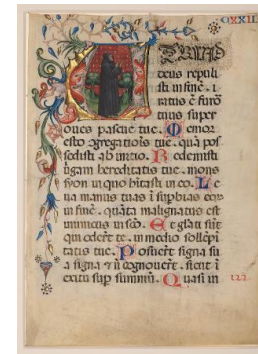 CXXII
T QUID
deus repuli
sti in fine. i
ratus e furo
tuus super
oues pascue tue. Memor
esto ɔgregatiois tue. qua pos
sedisti ab initio. Redemisti
uirgam hereditatis tue. mons
syon in quo hitasti in eo. Le
ua manus tuas i supbias eor
in fine. quata malignatus est
inimicus in sco. Et glati sut
qui oderut te. in medio sollepi
tatis tue. Posuert signa su
a signa et n cognouert. sicut i
exitu sup summu. Quasi in
122